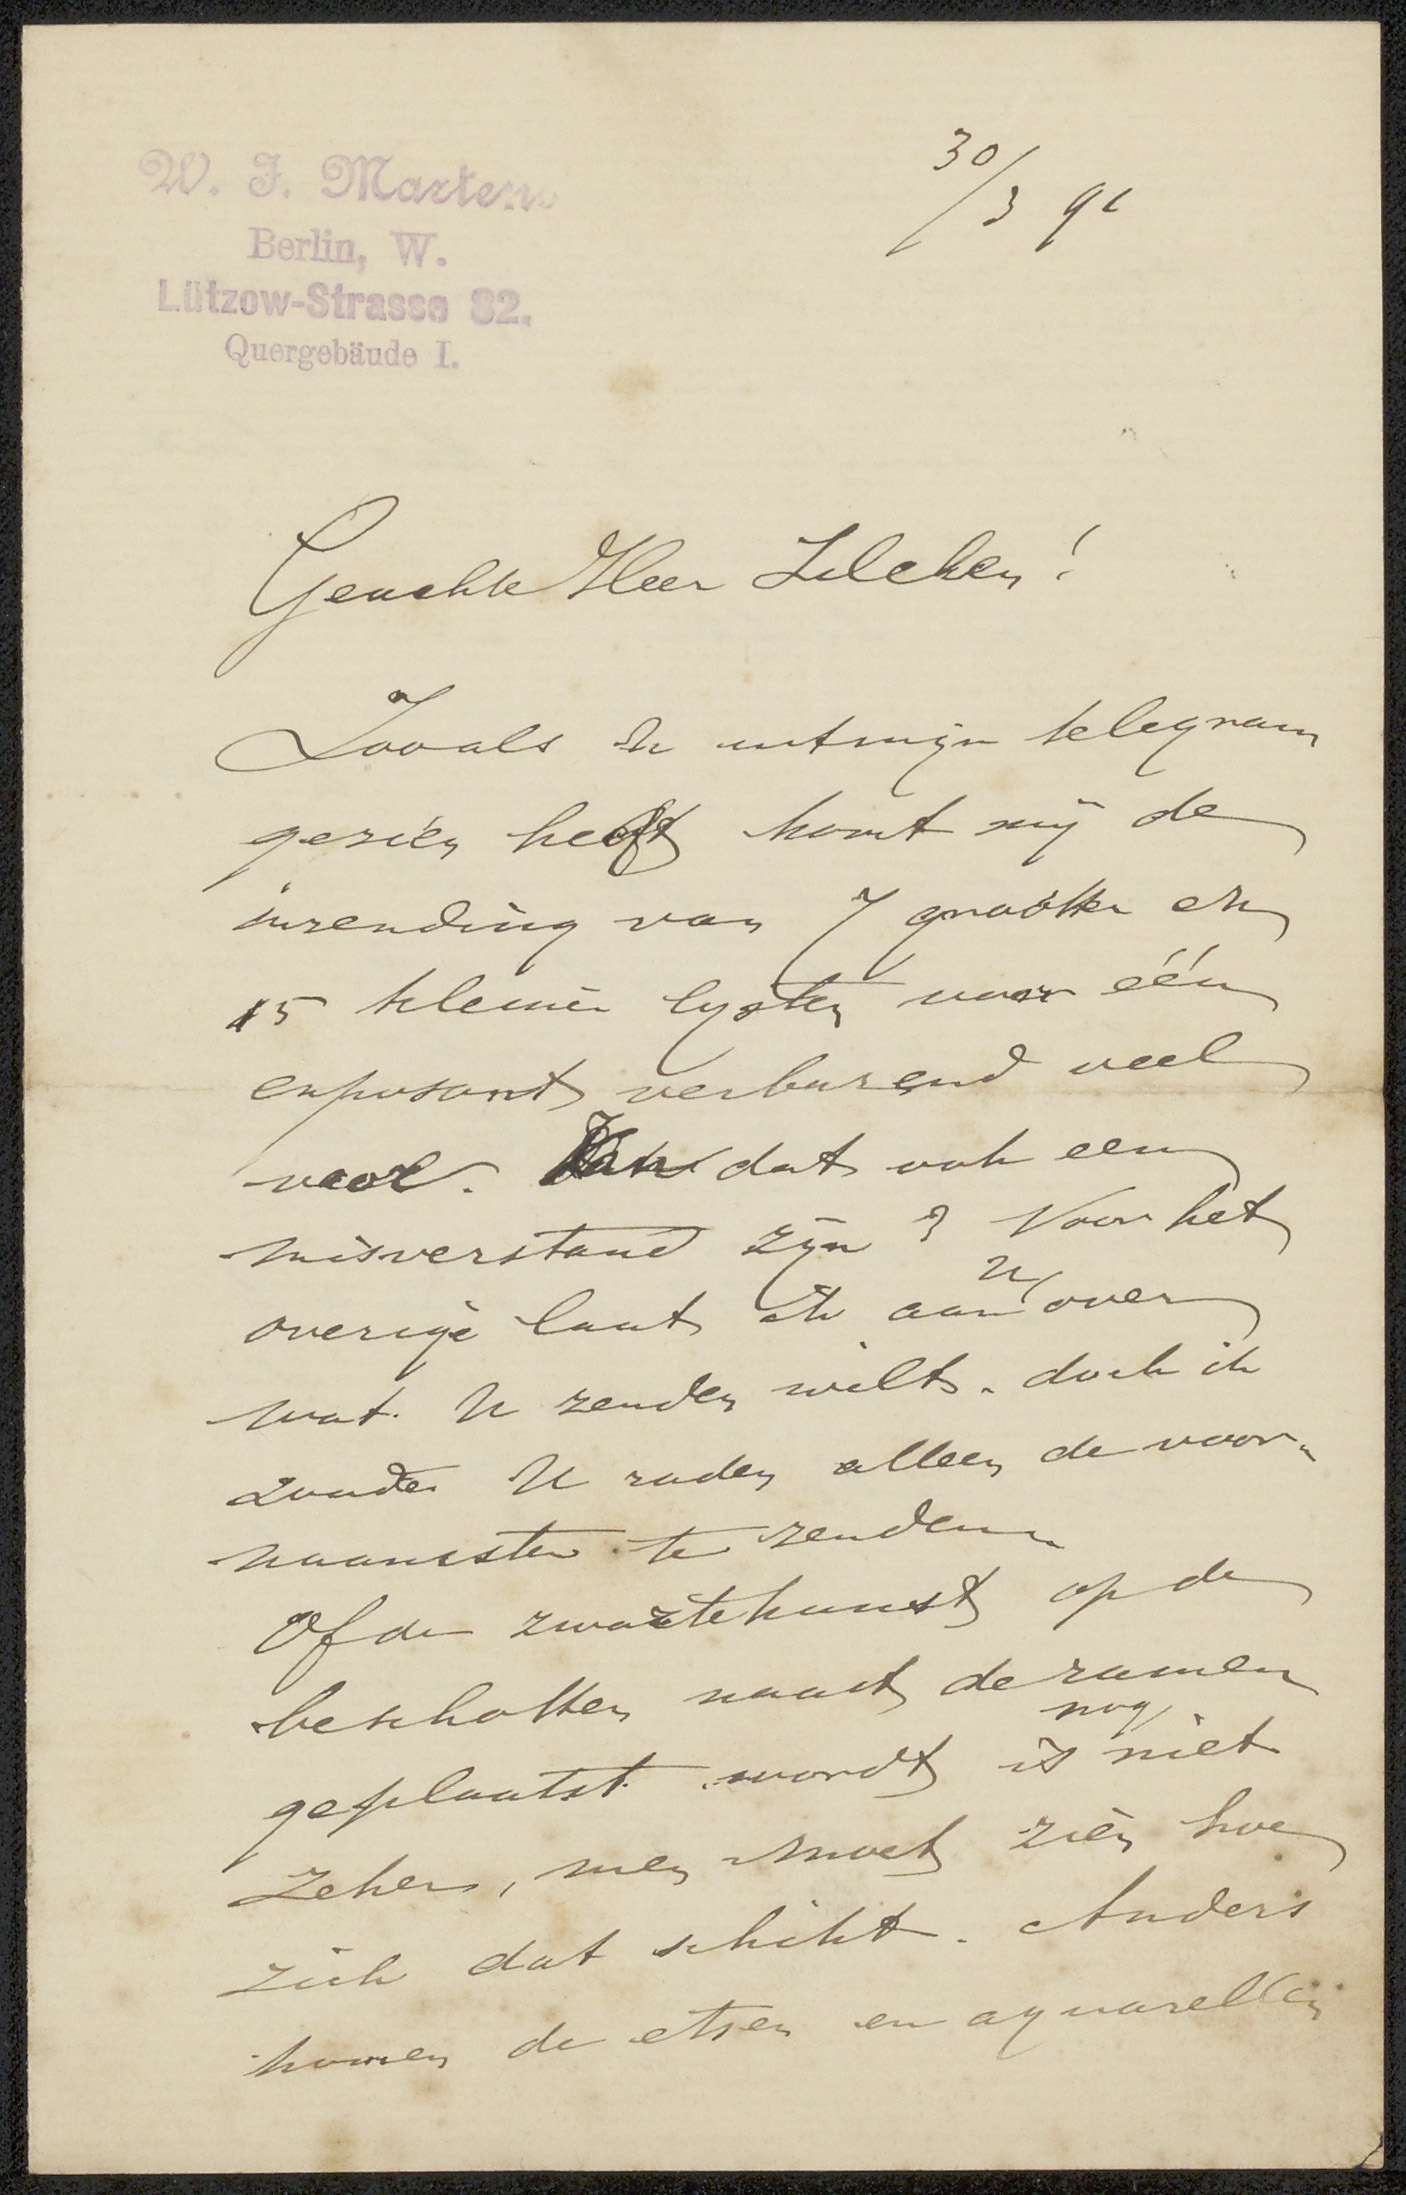 W. J. Martens
Berlin, W.
Lützow-Strasse 82.
Quergebäude I.
30/3 91
Geachte Heer Zilcken!
Zooals U uit mijn telegram
gezien heeft komt mij de
inzending van 7 grootte en
15 kleine lysten voor één
exposant verbazend veel
voor. Kan dat ook een
misverstand zijn? Voor het
overige laat ik aan U over
wat U zenden wilt. doch ik
zoude U raden alleen de voor-
naamste te zenden.
Of de zwartekunst op de
beschotten naast de ramen
geplaatst wordt is nog niet
zeker, men moet zien hoe
zich dat schikt. Anders
komen de etsen en aquarellen